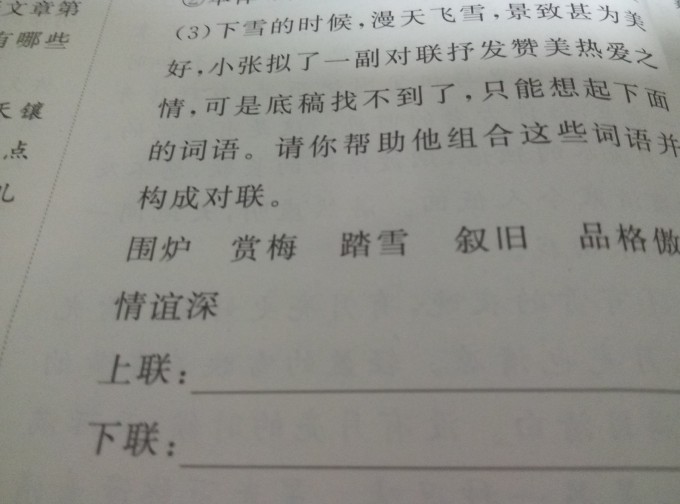 文章第
有哪些
天镶
点
儿
(3)下雪的时候,漫天飞雪,景致甚为美
好,小张拟了一副对联抒发赞美热爱之
情,可是底稿找不到了,只能想起下面
的词语。请你帮助他组合这些词语并
构成对联。
围炉 赏梅 踏雪 叙旧 品格傲
情谊深
上联:
下联: